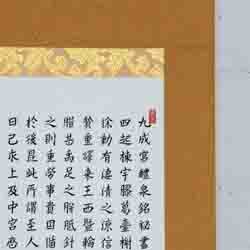 九成宮醴泉銘秘書
四起棟宇膠葛臺榭
徐動有淒清之涼信
贊重譯來王西暨輪
腊甚禹足之胼胝針
之則重勞事貴因循
於後昆此所謂至人
日己亥上及中宮歷